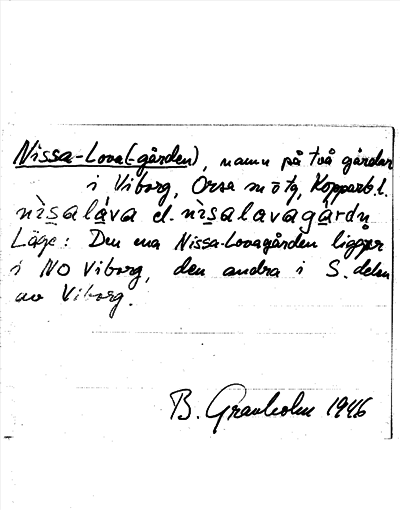 Nissa-Lova(-gården), namn på två gårdar
i Viborg, Orsa sn o tg, Kopparb.l.
nìsaláva el. nìsalavagárdn̥
Läge: Den ena Nissa-Lovagården ligger
i NO Viborg, den andra i S. delen
av Viborg.
B. Granholm 1946